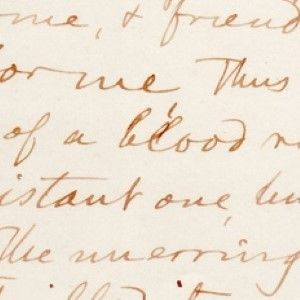 me, & friend
for me, Thus
of a blood r
istant one, bu
The unerring